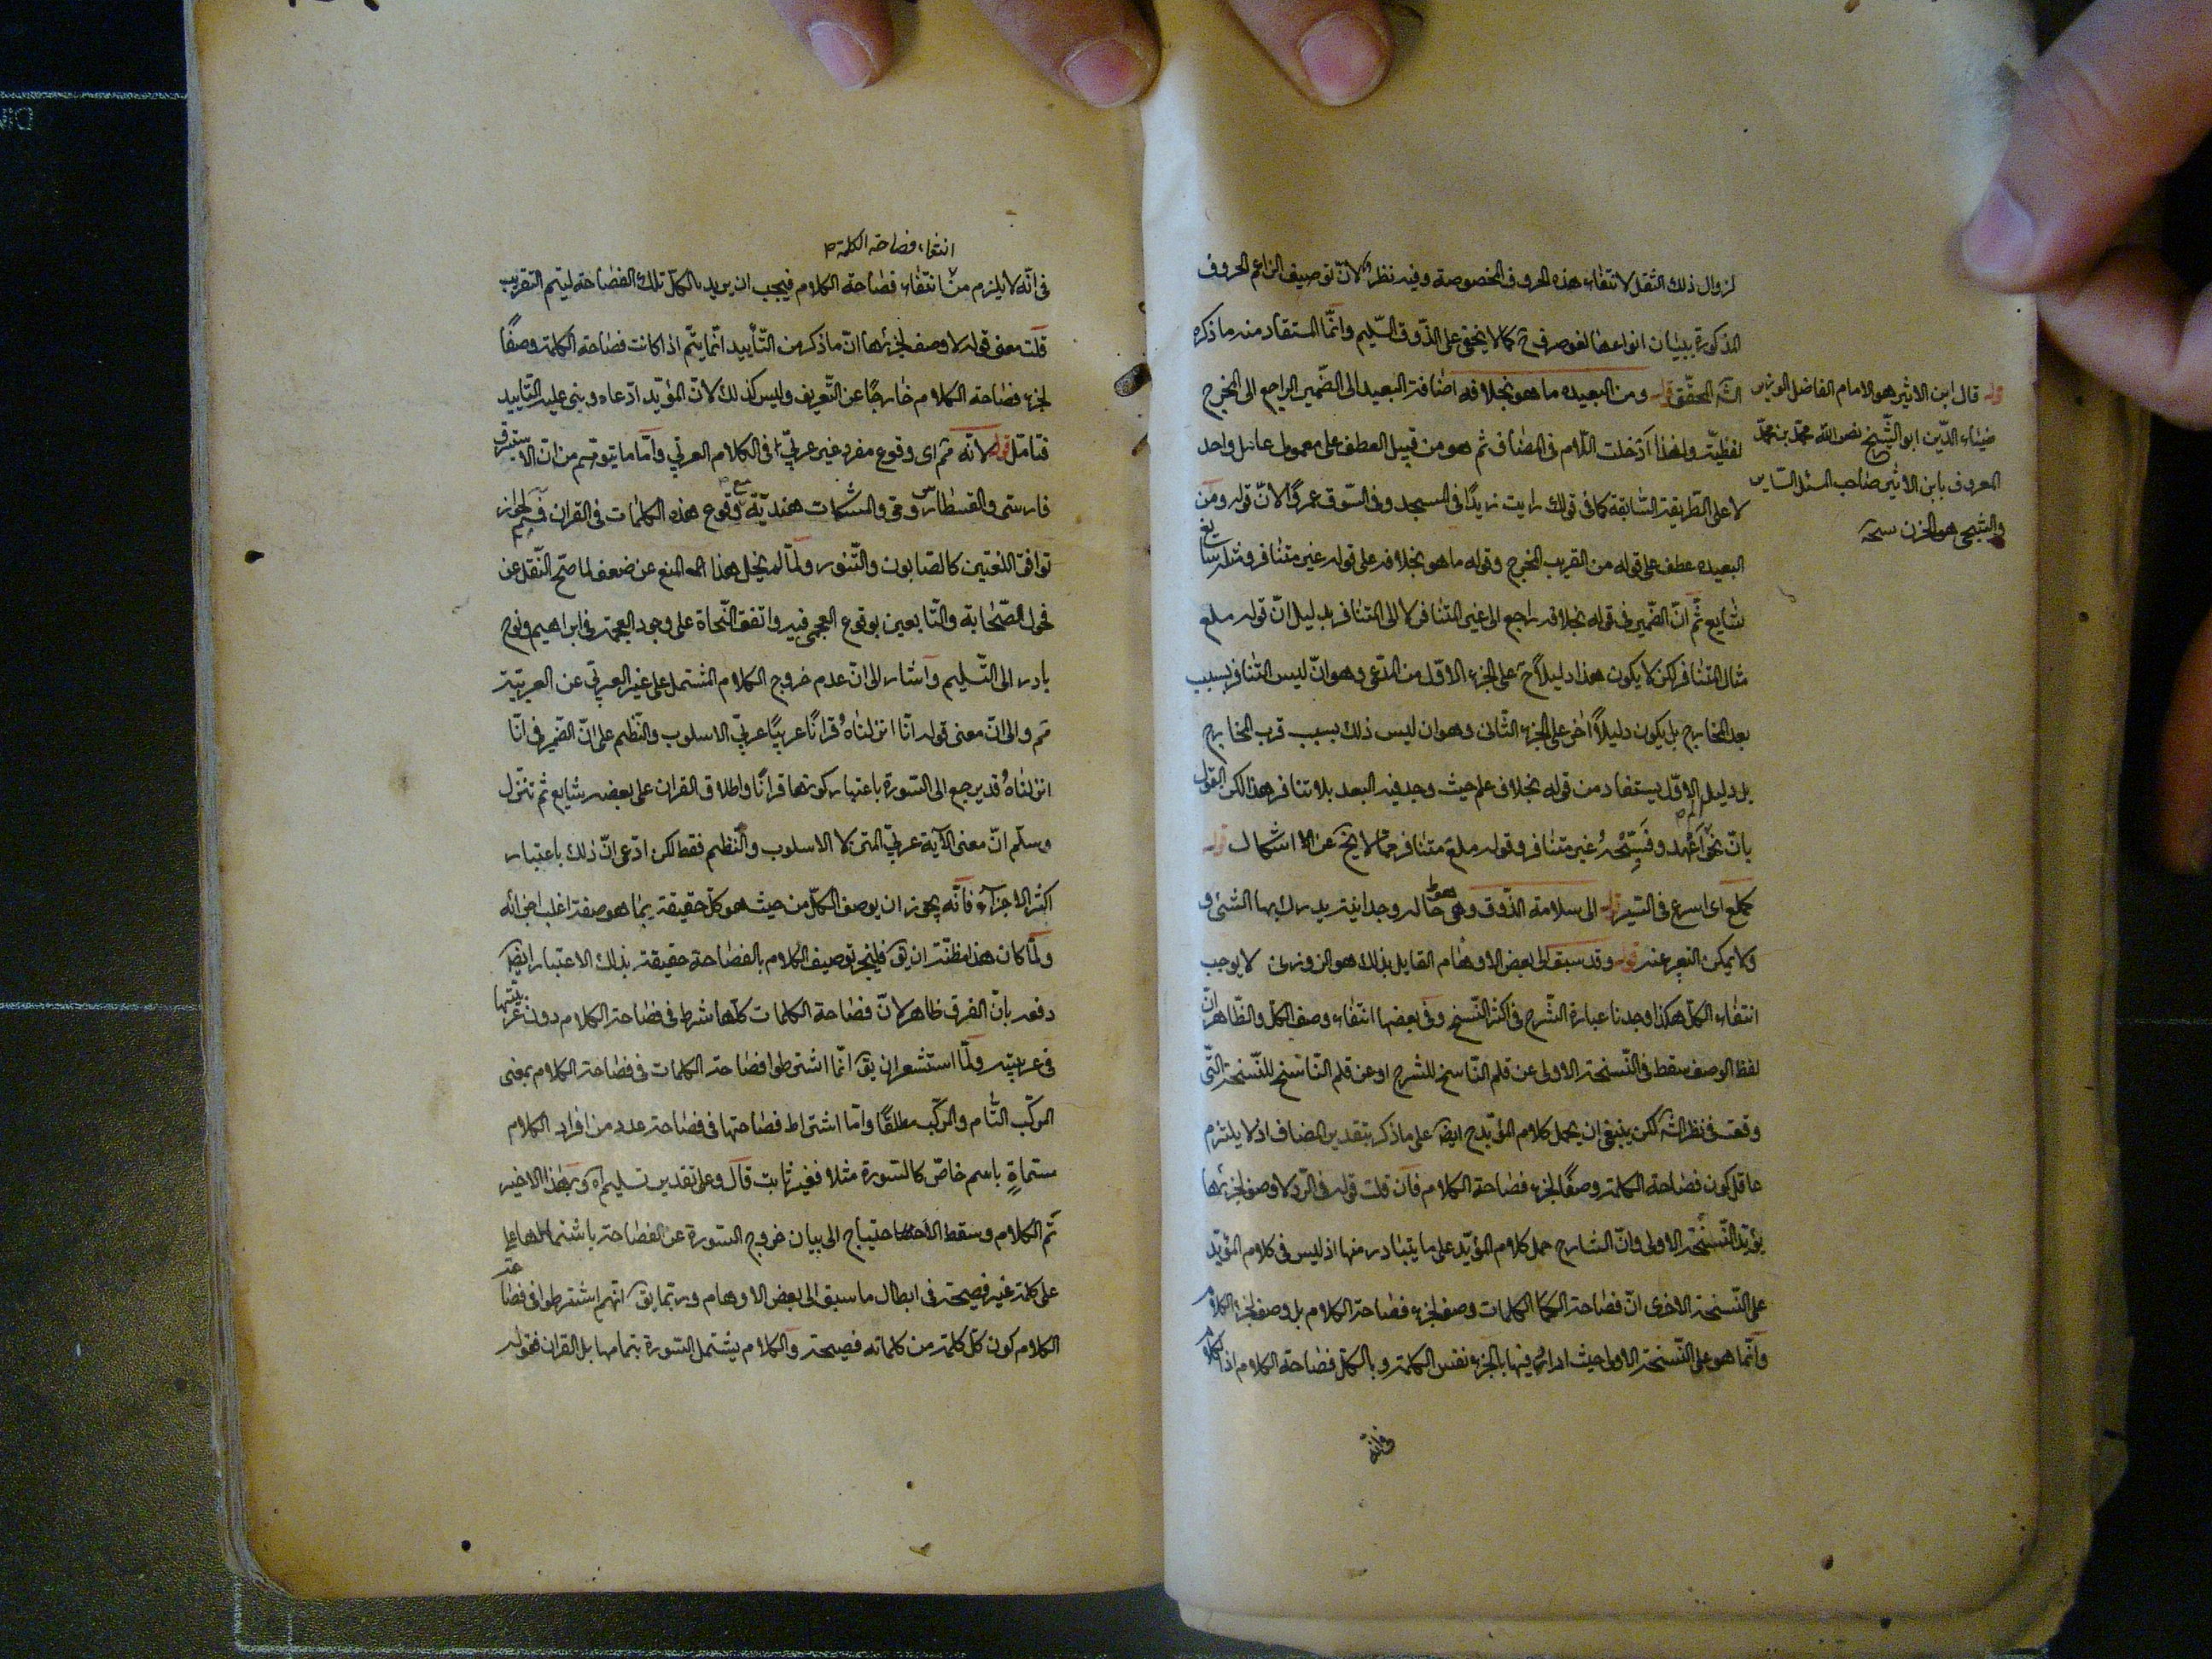 لزوال ذلك الثقل لانتفاء هذه الحروف المخصوصة وفيه نظر لانّ توصيف الزاعم الحروف
المذكورة ببيان انواعها لغو صرف ح كما لا يخفى على الذّوق السّليم وانّما المستفاد منه ما ذكره
الشّه المحقّق قوله ومن البعيده ما هو بخلافه اضافة البعيد الى الضّمير الراجع الى المخرج
لفظيّة ولهذا ادخلت اللّام فى المضاف ثم هو من قبيل العطف على معمولى عامل واحد
لا على الطّريقة السّابقة كما فى قولك رايت زيدًا فى المسجد وفى السّوق عمروًا لانّ قوله ومن
البعيده عطف على قوله من القريب المخرج وقوله ما هو بخلافه على قوله غير متنافر ومثله سايغ
شايع ثمّ انّ الضّمير فى قوله بخلافه راجع الى غير المتنافر لا الى المتنافر بدليل انّ قوله ملع
مثال المتنافر لكن لا يكون هذا دليلاً ح على الجزء الاوّل من المدّعى وهو انّ ليس التنافر بسبب
بعد المخارج بل يكون دليلاً اخر على الجزء الثّانى وهو ان ليس ذلك بسبب قرب المخارج
بل دليل الاوّل يستفاد من قوله بخلاف علم حيث وجد فيه البعد بلا تنافر هذا لكن القول
بانّ نحو اَعْهد وفَسَبِّحْهُ غير متنافر وقوله ملع متنافر ممّا لا يخ عن الاشكال قوله
كملع اى اسرع فى السّير قوله الى سلامة الذّوق وهى حالة وجدانية يدرك بها الشئ و
ولا يمكن التعبير عنه قوله وقد سبق الى بعض الاوهام القايل بذلك هو الزوزنى لا يوجب
انتفاء الكلّ هكذا وجدنا عبارة الشّرح فى اكثر النّسخ وفى بعضها انتفاء وصف الكلّ والظّاهر انّ
لفظ الوصف سقط فى النّسخة الاولى عن قلم النّاسخ للشرح او عن قلم النّاسخ للنّسخة الّتى
وقعت فى نظر الشّه لكن ينبغى ان يحمل كلام المؤيّد ح ايض على ما ذكر بتقدير المضاف اذ لا يلتزم
عاقل كون فصاحة الكلمة وصفًا لجزء فصاحة الكلام فان قلت قوله فى الرّد لا وصف لجزئها
يؤيّد النّسخة الاولى وانّ الشارح حمل كلام المؤيّد على ما يتبادر منها اذ ليس فى كلام المؤيّد
على النّسخة الاخرى انّ فصاحة الكلمات وصف لجزء فصاحة الكلام بل وصف لجزء الكلام
وانّما هو على النّسخة الاولى حيث اراد فيها بالجزء نفس الكلمة وبالكلّ فصاحة الكلام اذ الكلام
فى انّه
قوله قال ابن الاثير هو الامام الفاضل الوزير
ضياء الدّين ابو الشّيخ نصر الله محمّد بن محمّد
المعروف بابن الاثير صاحب المثل السّاير
والشجى هو الحزن
انتفاء فصاحة الكلمة
فى انّه لا يلزم من انتفاء فصاحة الكلام فيجب ان يريد بالكلّ تلك الفصاحة ليتم التقريب
قلت معنى قوله لا وصف لجزئها انّ ما ذكر من التّأييد انّما يتمّ اذا كانت فصاحة الكلمة وصفًا
لجزء فصاحة الكلام خارجًا عن التّعريف وليس كذلك لانّ المؤيّد ادّعاه وبنى عليه التّاييد
فتامّل قوله لانّه ثم اى وقوع مفرد غير عربىّ فى الكلام العربي وامّا ما يتوهّم من ان الاستبرق
فارسى والقسطاس رومى والمشكات هنديّة مع وقوع هذه الكلمات فى القران فيم لجواز
توافق اللغتين كالصّابون والتّنور ولمّا لم يخل هذا المنع عن ضعف لما صحّ النّقل عن
فحول الصّحابة والتّابعين بوقوع العجمى فيه واتفق النّحاة على وجود العجمة فى ابراهيم ونوح
بادر الى التّسليم واشار الى انّ عدم خروج الكلام المشتمل على غير العربي عن العربيّة
ثم والى انّ معنى قوله انّا انزلناهُ قرانًا عربيًا عربيّ الاسلوب والنّظم على انّ الضّمير فى انّا
انزلناهُ قد يرجع الى السّورة باعتبار كونها قرانًا واطلاق القران على بعضه شايع ثم تنزّل
وسلّم انّ معنى الآية عربيّ المتن لا الاسلوب والنّظم فقط لكن ادّعى انّ ذلك باعتبار
اكثر الاجزاء فانّه يجوز ان يوصف الكلّ من حيث هو كلّ حقيقة بما هو صفة اغلب اجزائه
ولمّا كان هذا مظنّة ان يق فليجز توصيف الكلام بالفصاحة حقيقة بذلك الاعتبار ايض
دفعه بانّ الفرق ظاهر لانّ فصاحة الكلمات كلّها شرط فى فصاحة الكلام دون عربيّتها
فى عربيّته ولمّا استشعر ان يق انّما اشترطوا فصاحة الكلمات فى فصاحة الكلام بمعنى
المركّب التّام والمركّب مطلقًا وامّا اشتراط فصاحتها فى فصاحة عدد من افراد الكلام
مسمّاةٍ باسم خاصّ كالسّورة مثلا فغير ثابت قال وعلى تقدير تسليم اه وبهذا الاخير
تم الكلام وسقط الاحتياج الى بيان خروج السّورة عن الفصاحة باشتمالها على
على كلمة غير فصيحة فى ابطال ما سبق الى بعض الاوهام وربّما يق انّهم اشترطوا فى فصاحة
الكلام كون كلّ كلمة من كلماته فصيحة والكلام يشتمل السّورة بتمامها بل القران فقوله